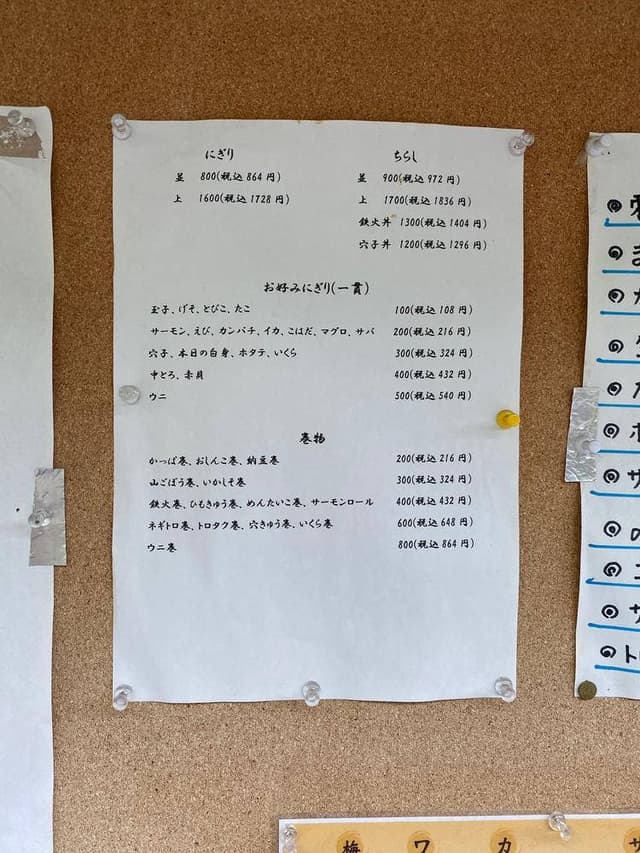 にぎり
並 800(税込 864 円)
上 1600(税込 1728 円)
ちらし
並 900(税込 972 円)
上 1700(税込 1836 円)
鉄火丼 1300(税込 1404 円)
穴子丼 1200(税込 1296 円)
お好みにぎり(一貫)
玉子、げそ、とびこ、たこ 100(税込 108 円)
サーモン、えび、カンパチ、イカ、こはだ、マグロ、サバ 200(税込 216 円)
穴子、本日の白身、ホタテ、いくら 300(税込 324 円)
中とろ、赤貝 400(税込 432 円)
ウニ 500(税込 540 円)
巻物
かっぱ巻、おしんこ巻、納豆巻 200(税込 216 円)
山ごぼう巻、いかしそ巻 300(税込 324 円)
鉄火巻、ひもきゅう巻、めんたいこ巻、サーモンロール 400(税込 432 円)
ネギトロ巻、トロタク巻、穴きゅう巻、いくら巻 600(税込 648 円)
ウニ巻 800(税込 864 円)
梅 ワ カ